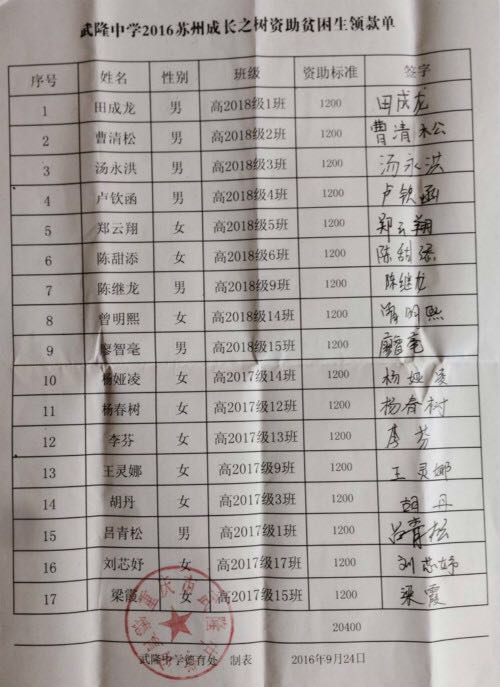 武隆中学2016苏州成长之树资助贫困生领款单
序号 姓名 性别 班级 资助标准 签字
1 田成龙 男 高2018级1班 1200 田成龙
2 曹清松 男 高2018级2班 1200 曹清松
3 汤永洪 男 高2018级3班 1200 汤永洪
4 卢钦函 男 高2018级4班 1200 卢钦函
5 郑云翔 女 高2018级5班 1200 郑云翔
6 陈甜添 女 高2018级6班 1200 陈甜添
7 陈继龙 男 高2018级9班 1200 陈继龙
8 曾明熙 女 高2018级14班 1200 曾明熙
9 廖智毫 男 高2018级15班 1200 廖智毫
10 杨娅凌 女 高2017级14班 1200 杨娅凌
11 杨春树 女 高2017级12班 1200 杨春树
12 李芬 女 高2017级13班 1200 李芬
13 王灵娜 女 高2017级9班 1200 王灵娜
14 胡丹 女 高2017级3班 1200 胡丹
15 吕青松 男 高2017级1班 1200 吕青松
16 刘芯妤 女 高2017级17班 1200 刘芯妤
17 梁霞 女 高2017级15班 1200 梁霞
20400
武隆中学德育处 制表 2016年9月24日